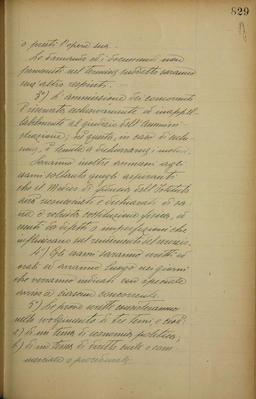 829
o presti l'opera sua.
Le domande ed i documenti non
pervenuti nel termine suddetto saranno
senz'altro respinti.
3°) L'ammissione dei concorrenti
è riservata esclusivamente ed inappel-
labilmente al giudizio dell'Amministra-
zione; né questa, in caso di esclu-
sione, è tenuta a dichiararne i motivi.
Saranno inoltre ammessi agli
esami soltanto quegli aspiranti
che il Medico di fiducia dell'Istituto
avrà riconosciuti e dichiarati di sa-
na e robusta costituzione fisica, ed
esenti da difetti o imperfezioni che
influiscano sul rendimento del servizio.
4°) Gli esami saranno scritti ed
orali ed avranno luogo nei giorni
che verranno indicati con speciale
avviso a ciascun concorrente.
5°) Le prove scritte consisteranno
nello svolgimento di tre temi, e cioè:
a) di un tema di economia politica;
b) di un tema di diritto civile o com-
merciale o procedurale